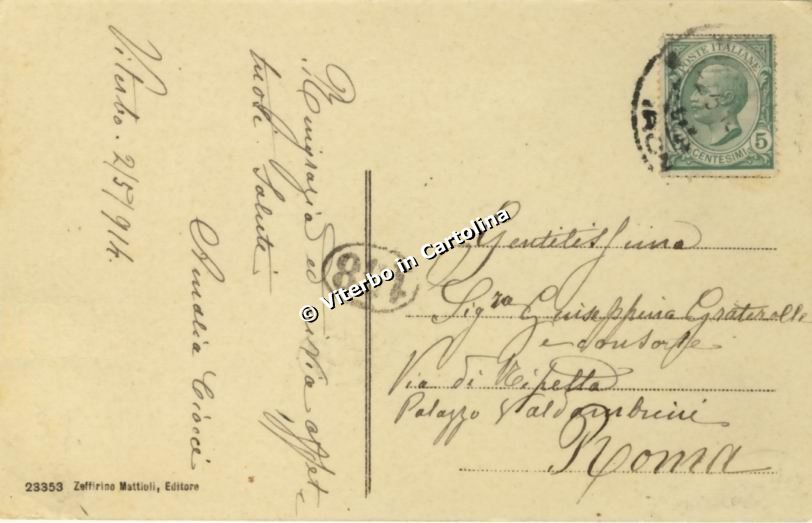 Viterbo. 2/5/914
Ringrazia ed invia affet-
tuosi Saluti
Amalia
POSTE ITALIANE
CENTESIMI 5
Gentilissima
Sig.ra Giuseppina
e consorte
Via di Ripetta
Palazzo Valdambrini
Roma
© Viterbo in Cartolina
23353 Zeffirino Mattioli, Editore